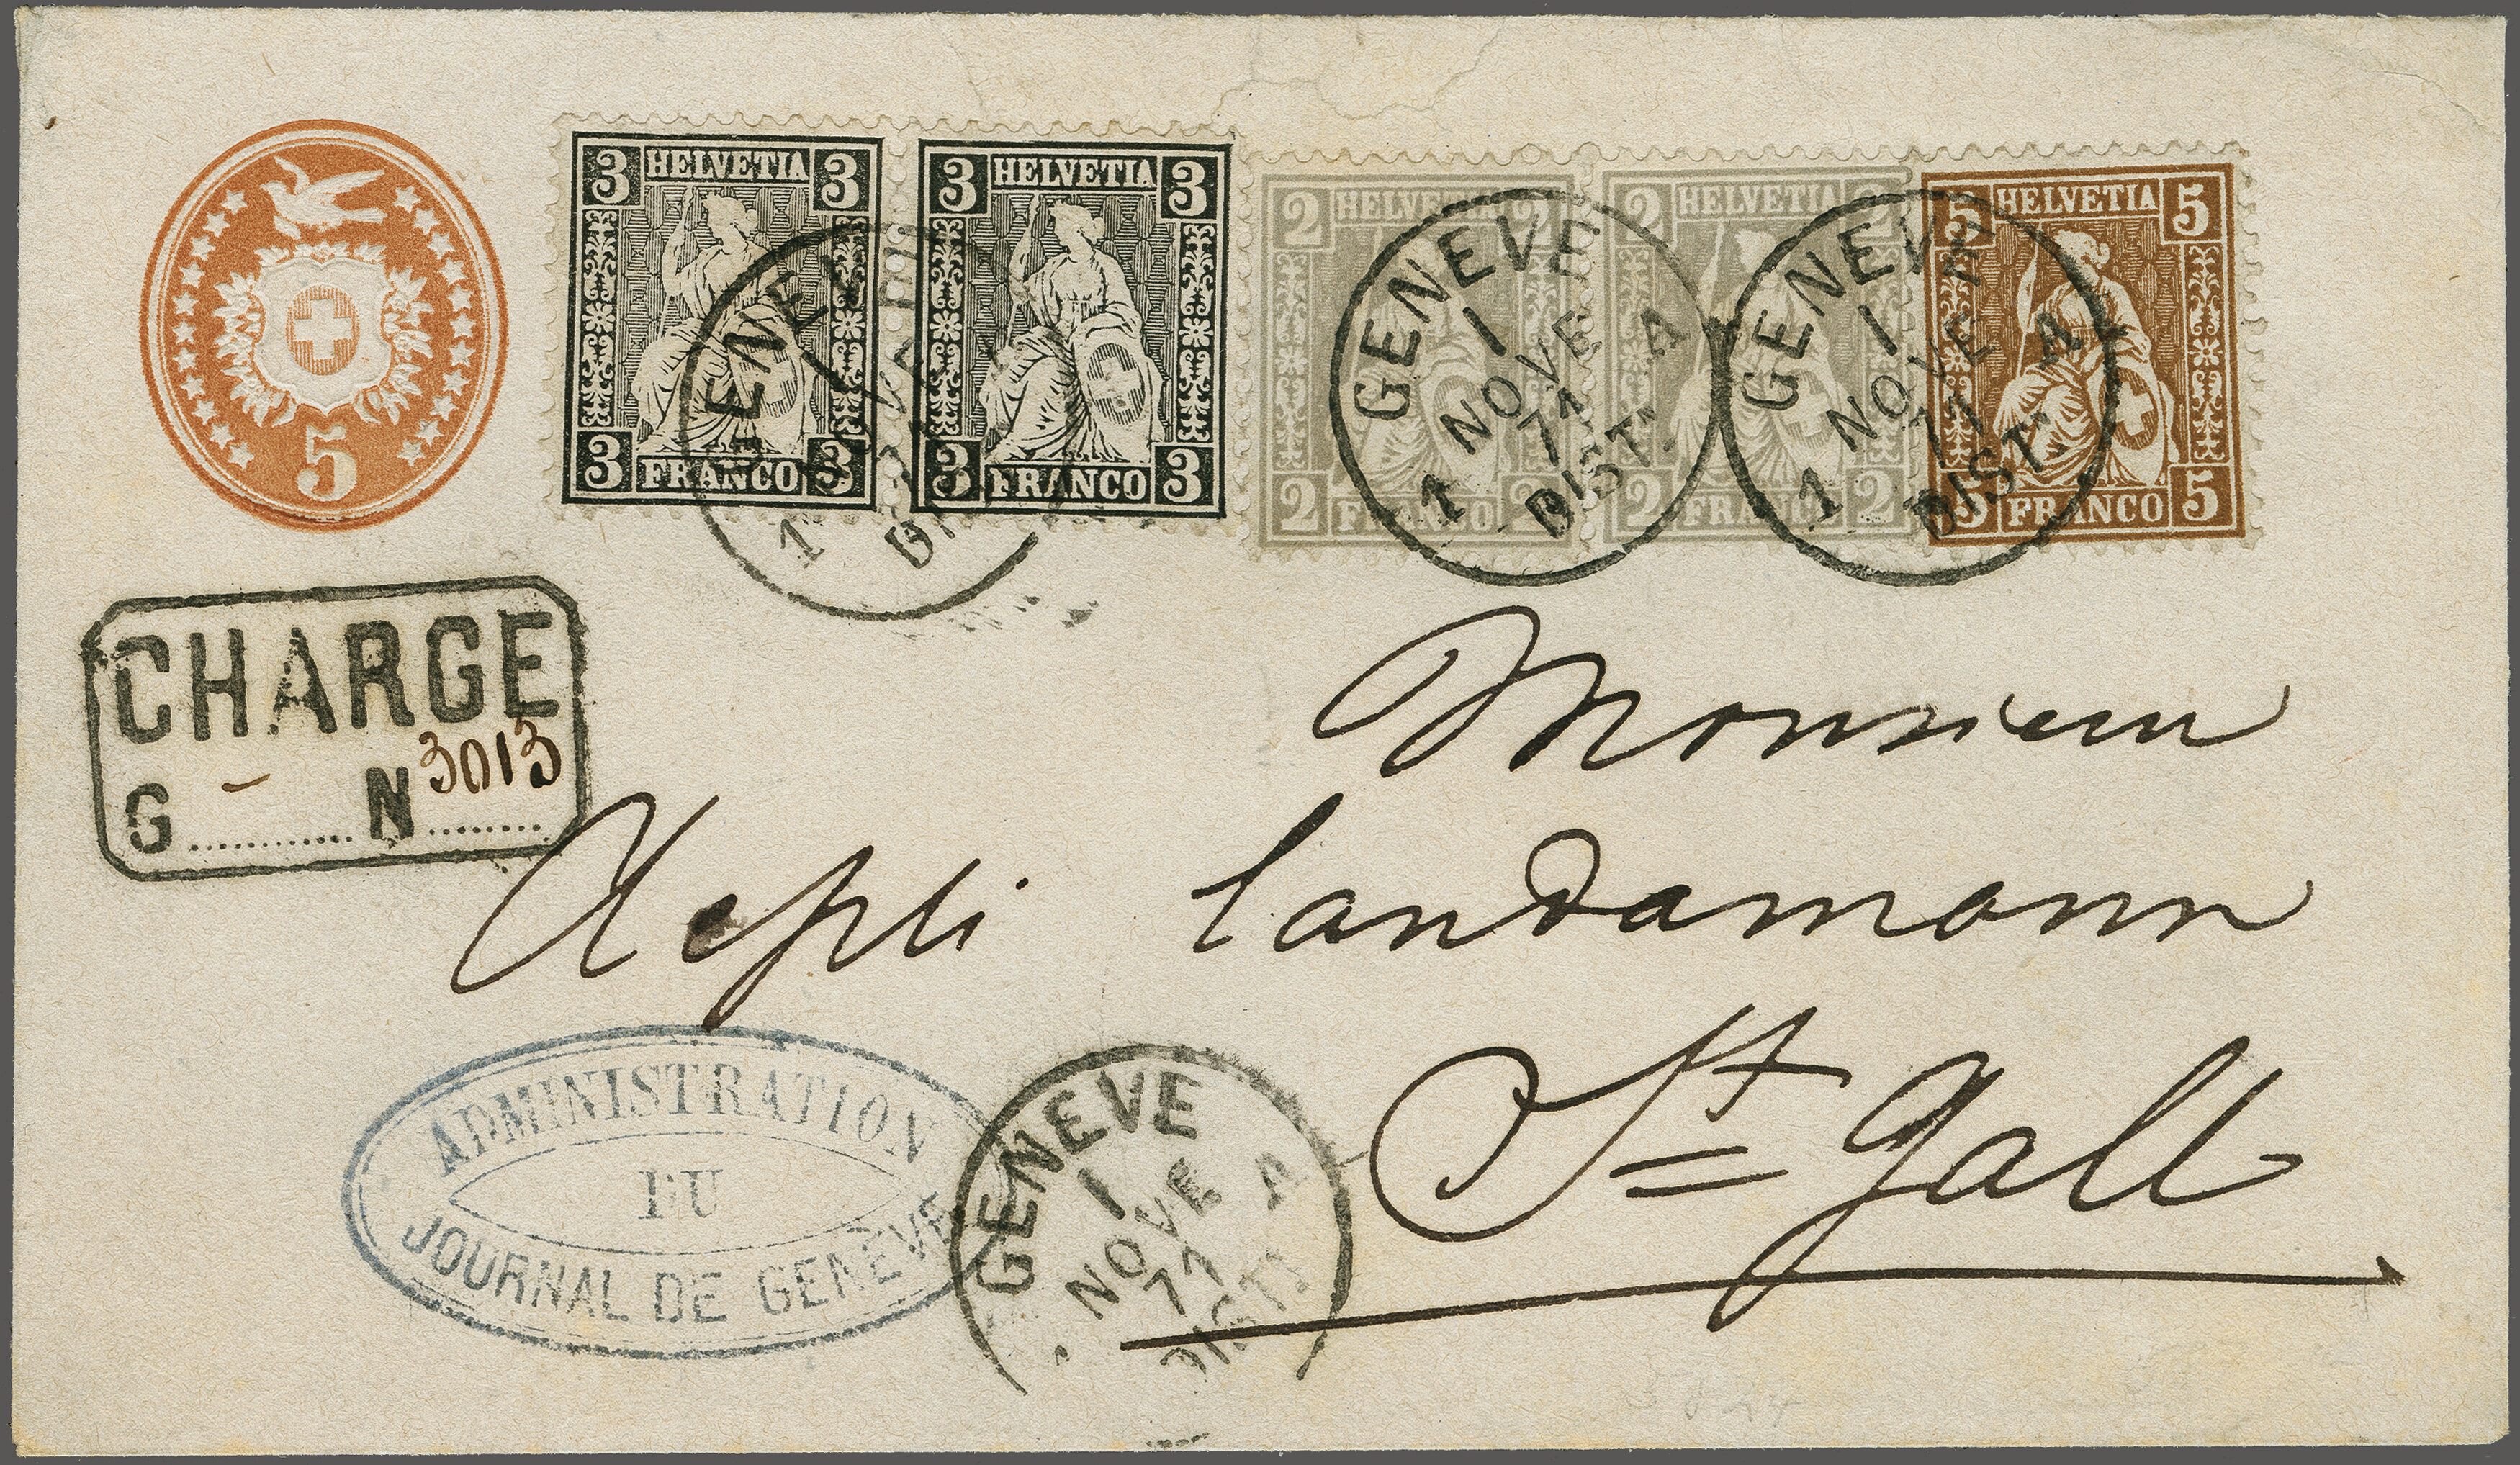 5
3 HELVETIA 3
3 FRANCO 3
3 HELVETIA 3
3 FRANCO 3
2 HELVETIA 2
2 FRANCO 2
2 HELVETIA 2
2 FRANCO 2
5 HELVETIA 5
5 FRANCO 5
GENEVE
1
GENEVE
1
NOVE A
71
1 DIST.
GENEVE
1
NOVE A
71
1 DIST.
CHARGE
G - N 3013
Monsieur
Aepli Landamann
St Gall
ADMINISTRATION
DU
JOURNAL DE GENEVE
GENEVE
1
NOVE A
71
DIST.